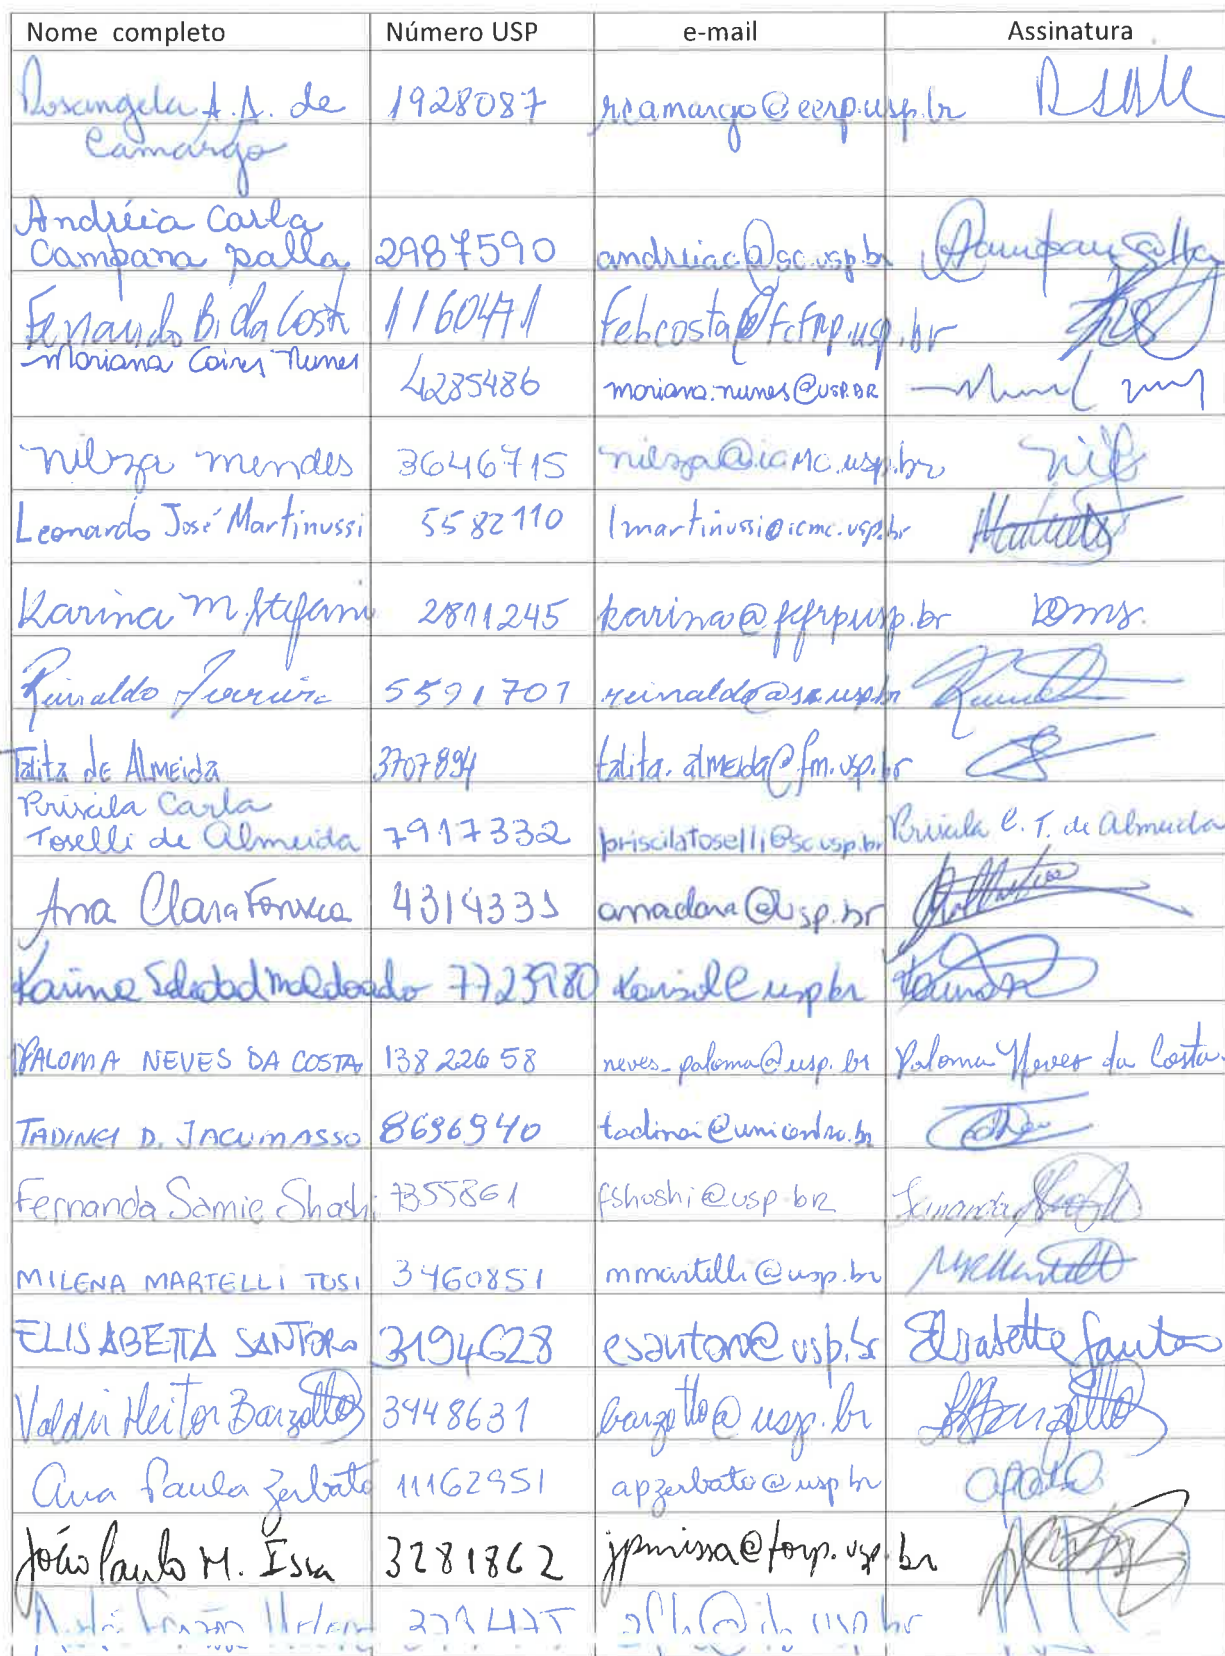 Nome completo Número USP e-mail Assinatura
Rosangela A. A. de 1928087 rcamargo@eerp.usp.br
Camargo
Andréia Carla
Campana Salla 2987590 andreiac@sc.usp.br
Fernando B. da Costa 1160471 febcosta@fcfrp.usp.br
Mariana Caires Nunes
4285486 mariana.nunes@USP.BR
Nilza Mendes 3646715 nilza@icmc.usp.br
Leonardo José Martinussi 5582110 lmartinussi@icmc.usp.br
Karina M. Stefani 2811245 karina@fcfrp.usp.br
Reinaldo Ferreira 5591701 reinaldo@sc.usp.br
Talita de Almeida 3707894 talita.almeida@fm.usp.br
Priscila Carla
Toselli de Almeida 7917332 priscilatoselli@sc.usp.br Priscila C. T. de Almeida
Ana Clara Fonseca 4314331 anaclara@usp.br
Karina Soledad Maldonado 7723980 karisol@usp.br
PALOMA NEVES DA COSTA 13822658 neves_paloma@usp.br Paloma Neves da Costa
TADINEI D. JACUMASSO 8696940 tadinei@unicentro.br
Fernanda Samie Shoshi 7355861 fshoshi@usp.br Fernanda
MILENA MARTELLI TOSI 3460851 mmartelli@usp.br
ELISABETTA SANTORO 3194628 esantoro@usp.br Elisabetta Santoro
Valdir Heitor Barzotto 3448631 barzotto@usp.br
Ana Paula Zerbato 11162951 apzerbato@usp.br
João Paulo M. Issa 3281862 jpmissa@forp.usp.br